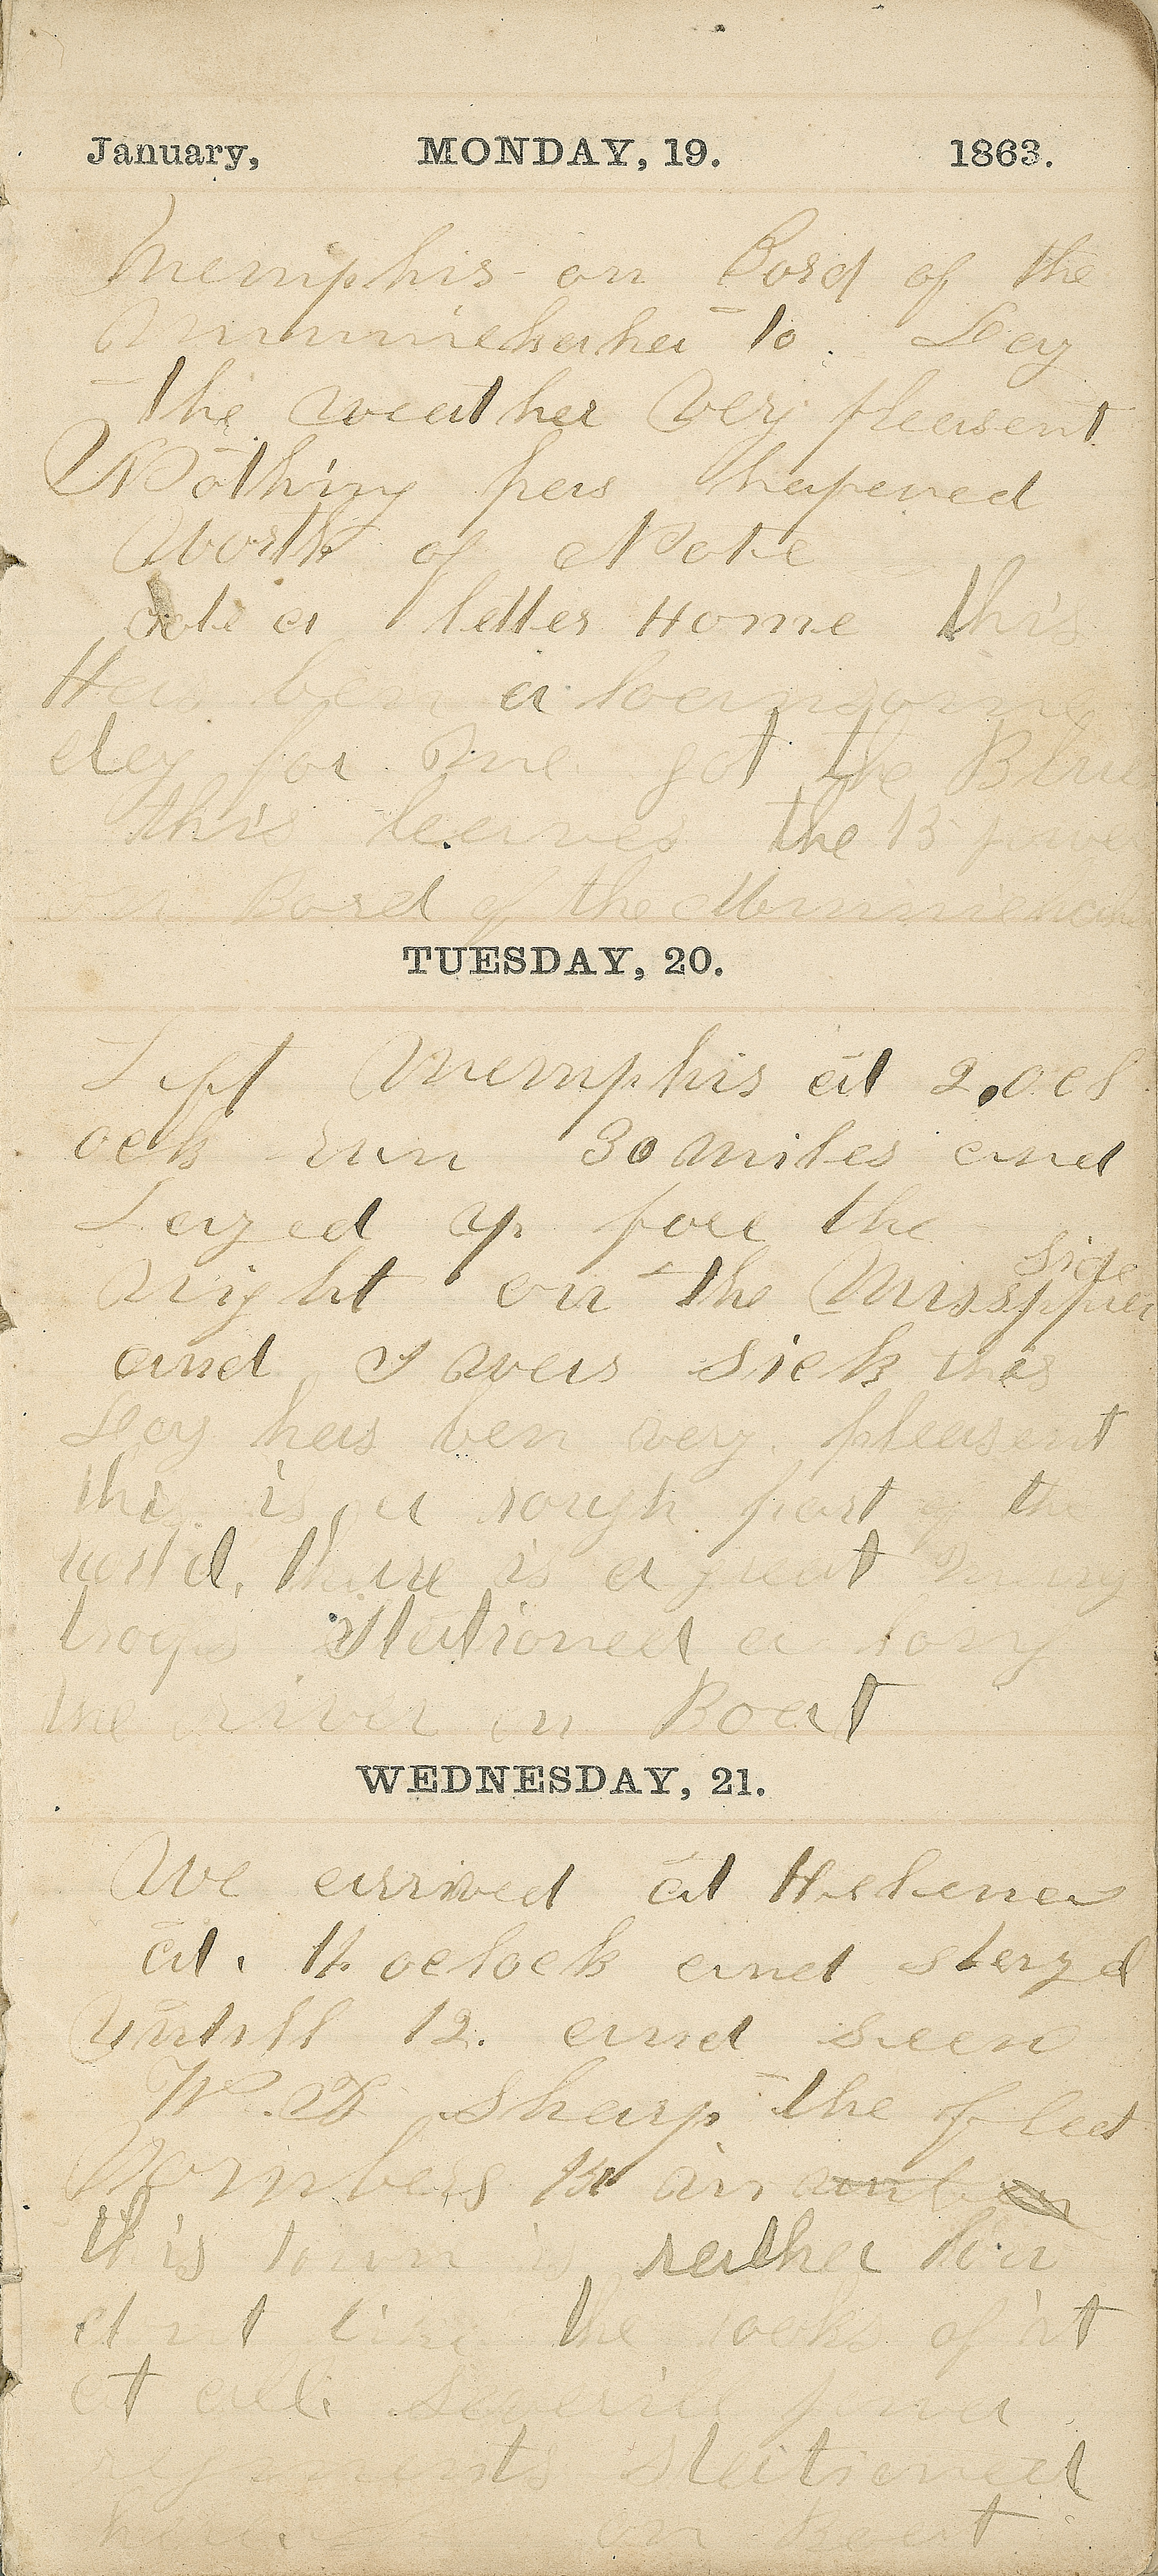 January, MONDAY, 19. 1863.
Memphis on Bord of the
Minniehaha to Day
the weather very pleasent
Nothing has hapened
Worth of Note
rote a letter Home this
Has ben a loansome
day for me got the Blues
this leaves the 13 Iowa
on Bord of the Minniehaha
TUESDAY, 20.
Left Memphis at 2.ocl
ock run 30 miles and
Layed up fore the
side
Night on the Missppia
and I was sick this
Day has ben very pleasent
this is a rough part of the
world, thare is a great many
troops stationed a long
the river on Boat
WEDNESDAY, 21.
We arrived at Helena
at. 11. oclock and stayd
untill 12. and seen
W. D Sharp the fleet
Nombers 12 in
this town is rather low
dont like the looks of it
at all. Severil Iowa
regments stationed
here on Boat